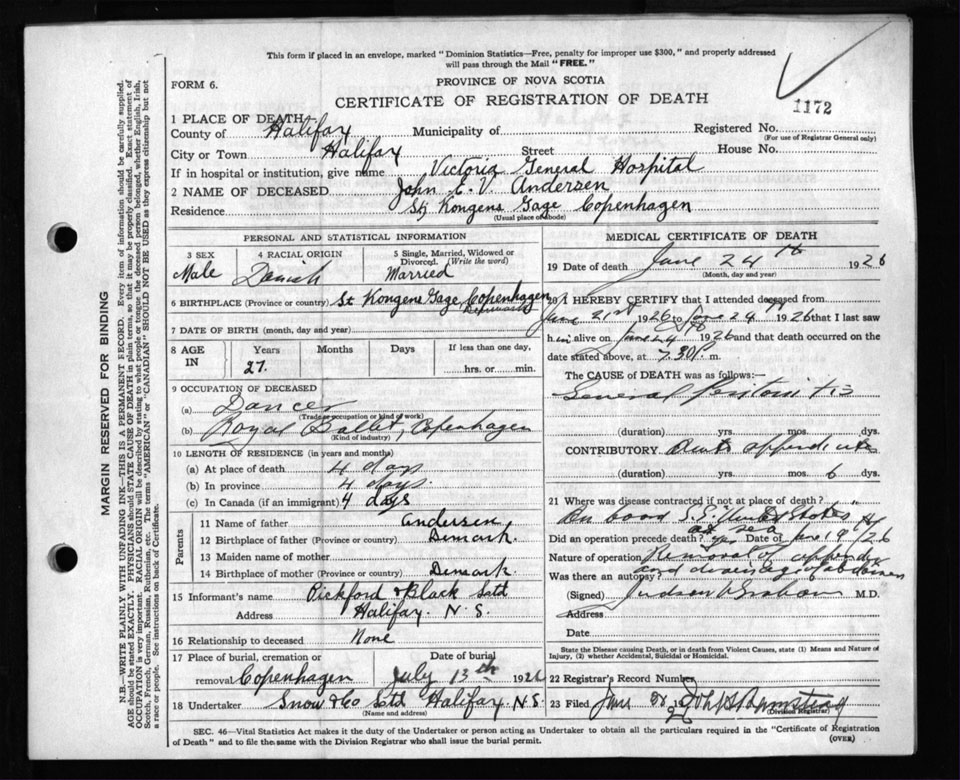 This form if placed in an envelope, marked "Dominion Statistics—Free, penalty for improper use $300," and properly addressed
will pass through the Mail "FREE."
FORM 6.
PROVINCE OF NOVA SCOTIA
CERTIFICATE OF REGISTRATION OF DEATH
1172
1 PLACE OF DEATH
County of Halifax Municipality of Registered No.
(For use of Registrar General only)
City or Town Halifax Street House No.
If in hospital or institution, give name Victoria General Hospital
2 NAME OF DECEASED John E. V. Andersen
Residence St Kongens Gage Copenhagen
(Usual place of abode)
PERSONAL AND STATISTICAL INFORMATION
3 SEX
Male
4 RACIAL ORIGIN
Danish
5 Single, Married, Widowed or
Divorced. (Write the word)
Married
6 BIRTHPLACE (Province or country) St Kongens Gage, Copenhagen
Denmark
7 DATE OF BIRTH (month, day and year)
8 AGE
IN
Years
27.
Months
Days
If less than one day,
hrs. or min.
9 OCCUPATION OF DECEASED
(a) Dancer
(Trade or occupation or kind of work)
(b) Royal Ballet, Copenhagen
(Kind of industry)
10 LENGTH OF RESIDENCE (in years and months)
(a) At place of death 4 days
(b) In province 4 days
(c) In Canada (if an immigrant) 4 days
Parents
11 Name of father Andersen
12 Birthplace of father (Province or country) Denmark
13 Maiden name of mother
14 Birthplace of mother (Province or country) Denmark
15 Informant's name Pickford & Black Ltd
Address Halifax. N.S.
16 Relationship to deceased None
17 Place of burial, cremation or
removal Copenhagen
Date of burial
July 13th 1926
18 Undertaker Snow & Co Ltd Halifax N.S.
(Name and address)
MEDICAL CERTIFICATE OF DEATH
19 Date of death June 24th 1926
(Month, day and year)
20 I HEREBY CERTIFY that I attended deceased from
June 21st 1926 to June 24 1926 that I last saw
him alive on June 24 1926 and that death occurred on the
date stated above, at 7.30 P. m.
The CAUSE of DEATH was as follows:—
General Peritonitis
(duration) yrs. mos. dys.
CONTRIBUTORY Acute appendicitis
(duration) yrs. mos. 6 dys.
21 Where was disease contracted if not at place of death?
On board S.S. at sea
Did an operation precede death? yes Date of June 19/26
Nature of operation Removal of appendix
and drainage of abdomen
Was there an autopsy?
(Signed) Judson V Graham M.D.
Address
Date
State the Disease causing Death, or in death from Violent Causes, state (1) Means and Nature of
Injury, (2) whether Accidental, Suicidal or Homicidal.
22 Registrar's Record Number
23 Filed June 19
(Division Registrar)
SEC. 46—Vital Statistics Act makes it the duty of the Undertaker or person acting as Undertaker to obtain all the particulars required in the "Certificate of Registration
of Death" and to file the same with the Division Registrar who shall issue the burial permit.
(OVER)
MARGIN RESERVED FOR BINDING
N.B.—WRITE PLAINLY WITH UNFADING INK—THIS IS A PERMANENT RECORD. Every item of information should be carefully supplied.
AGE should be stated EXACTLY. PHYSICIANS should STATE CAUSE OF DEATH in plain terms, so that it may be properly classified. Exact statement of
OCCUPATION is very important. RACIAL ORIGIN will be described by stating to what people or tongue the deceased person belonged, whether English, Irish,
Scotch, French, German, Russian, Ruthenian, etc. The terms "AMERICAN" or "CANADIAN" SHOULD NOT BE USED as they express citizenship but not
a race or people. See instructions on back of Certificate.